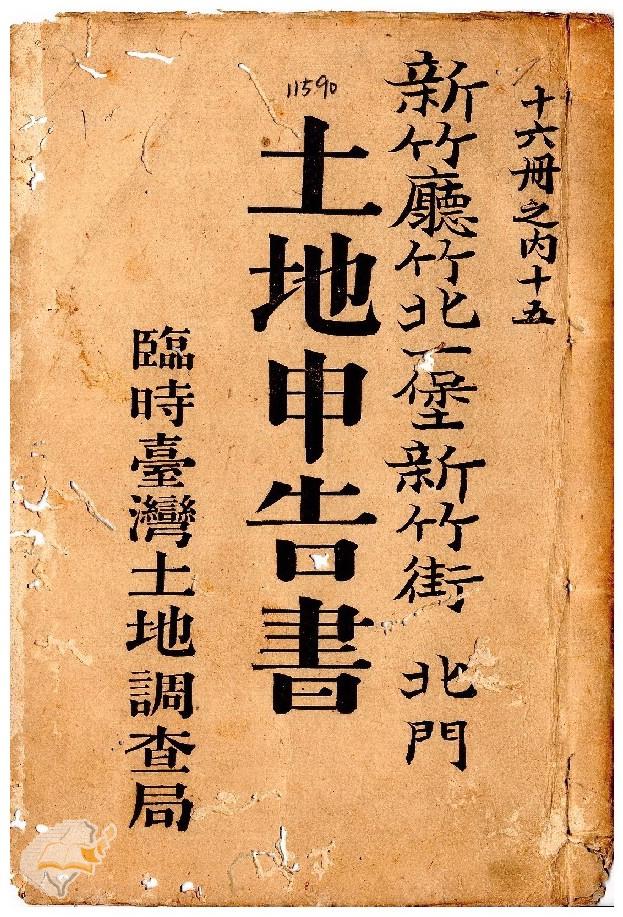 十六冊之內十五
新竹廳竹北一堡新竹街 北門
11590
土地申告書
臨時臺灣土地調查局